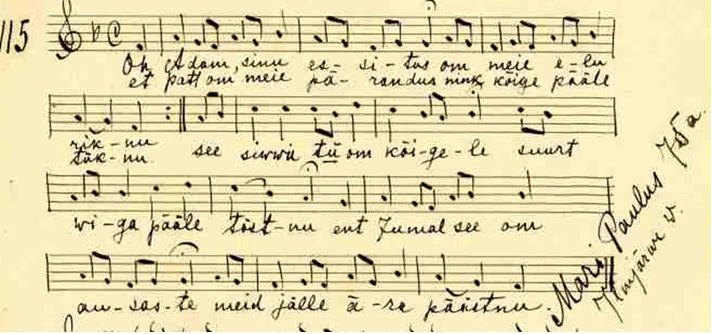 115
Oh Adam, sinu es-si-tus om meie e-lu
et patt om meie pä-randus nink kõige pääle
rik-nu see surwu tü om kõi-ge-le suurt
täk-nu.
wi-ga pääle tõst-nu ent Jumal see om
au-sas-te meid jälle ä-ra päästnu.
Mari Paulus 75 a.